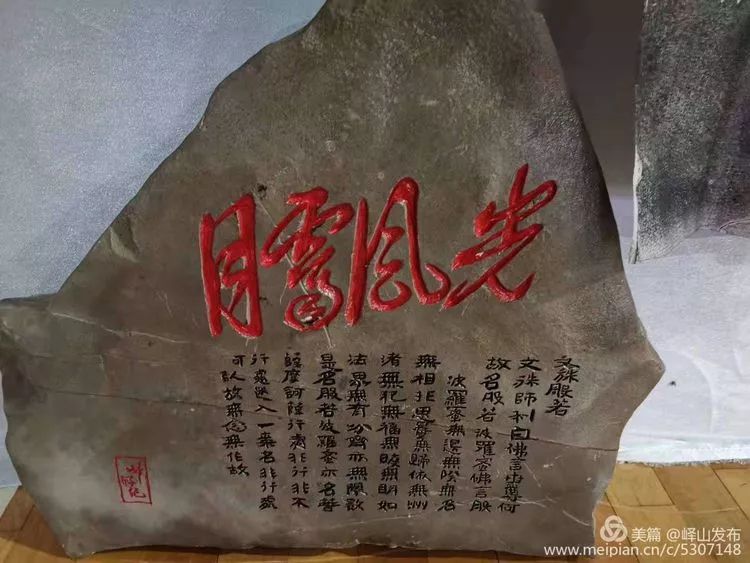 光風霽月
文殊般若
文殊師利白佛言世尊何
故名般若波羅蜜佛言般
波羅蜜無邊無際無名
無相非思量無歸依無洲
渚無犯無福無晦無明如
法界無有分齊亦無限數
是名般若波羅蜜亦名菩
薩摩訶薩行處非行非不
行處悉入一乘名非行處
何以故無念無作故
美篇 @峄山发布
www.meipian.cn/c/5307148